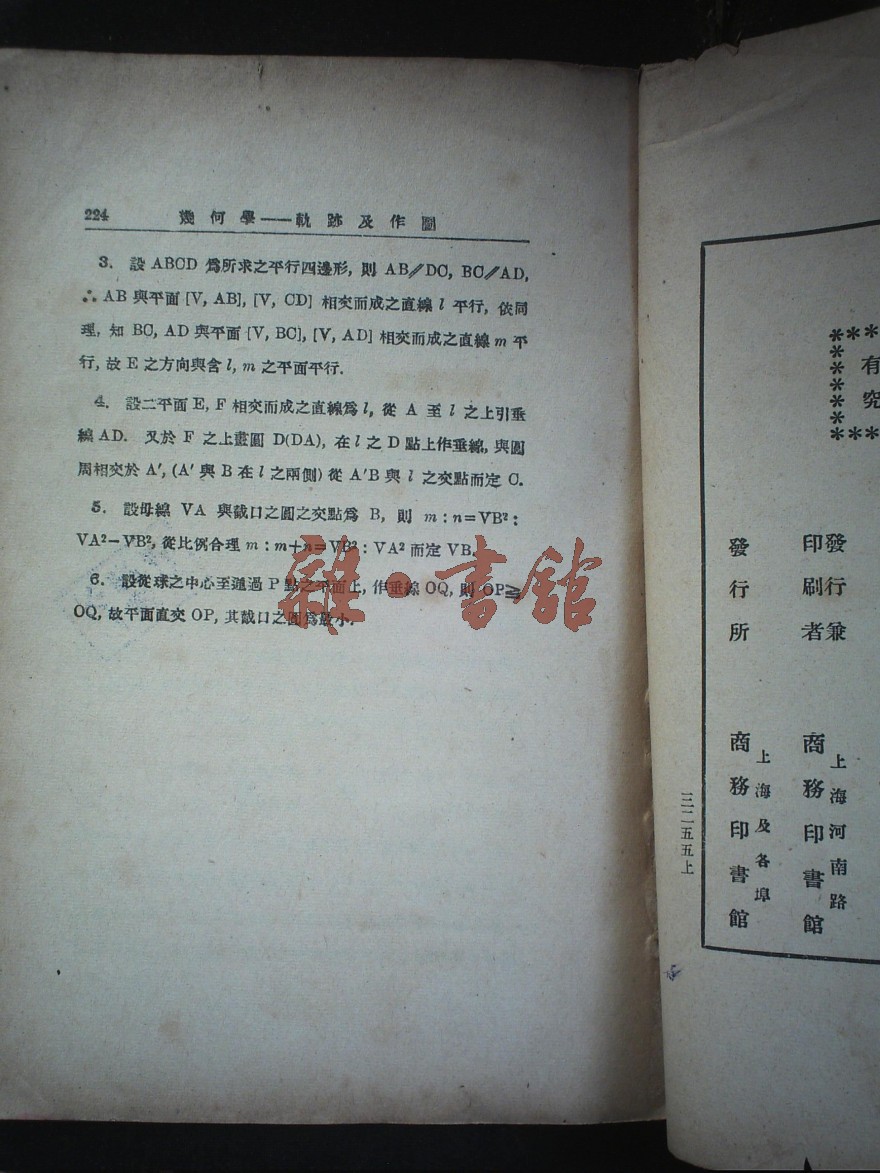 224 幾何學——軌跡及作圖
3. 設 ABCD 爲所求之平行四邊形, 則 AB∥DC, BC∥AD,
∴ AB 與平面 [V, AB], [V, CD] 相交而成之直線 l 平行, 依同
理, 知 BC, AD 與平面 [V, BC], [V, AD] 相交而成之直線 m 平
行, 故 E 之方向與含 l, m 之平面平行.
4. 設二平面 E, F 相交而成之直線爲 l, 從 A 至 l 之上引垂
線 AD. 又於 F 之上畫圓 D(DA), 在 l 之 D 點上作垂線, 與圓
周相交於 A′, (A′ 與 B 在 l 之兩側) 從 A′B 與 l 之交點而定 C.
5. 設母線 VA 與截口之圓之交點爲 B, 則 m : n=VB² :
VA²−VB², 從比例合理 m : m+n=VB² : VA² 而定 VB.
6. 設從球之中心至通過 P 點之平面上, 作垂線 OQ, 則 OP≧
OQ, 故平面直交 OP, 其截口之圓爲最小.
雜·書館
***
有
究
***
發行兼
印刷者
上海河南路
商務印書館
發行所
上海及各埠
商務印書館
三二五五上